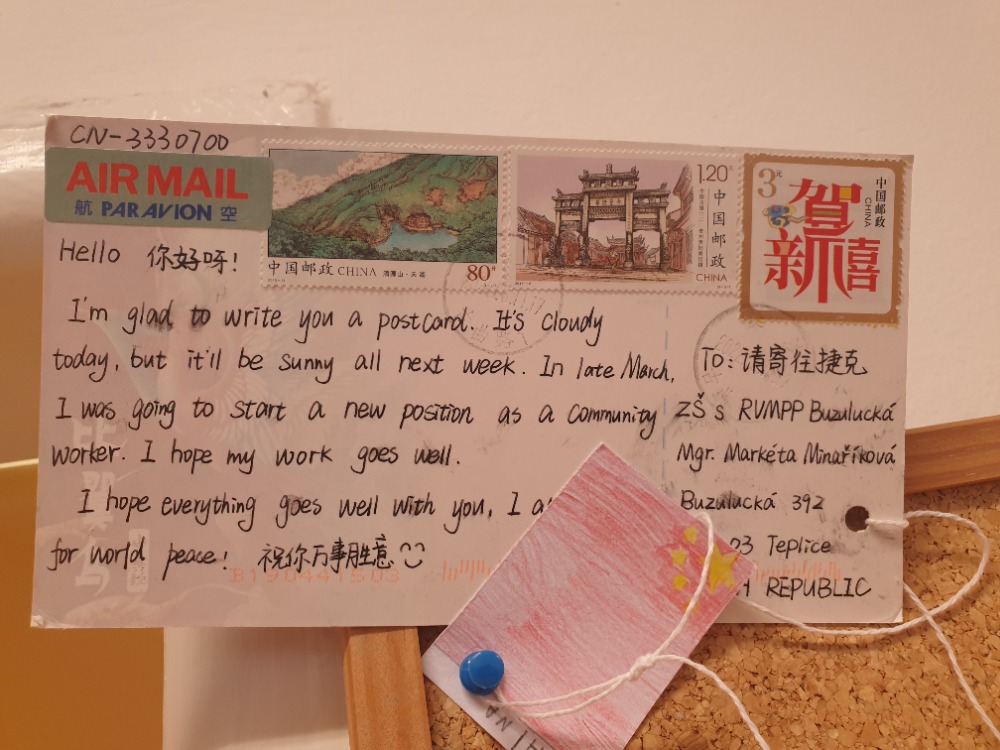 CN-3330700
AIR MAIL
航 PAR AVION 空
中国邮政 CHINA
80
1.20元
中国邮政
CHINA
3元
中国邮政
CHINA
贺新禧
Hello 你好呀!
I'm glad to write you a postcard. It's cloudy
today, but it'll be sunny all next week. In late March,
I was going to start a new position as a community
worker. I hope my work goes well.
I hope everything goes well with you, I
for world peace! 祝你万事胜意
B190441503
To: 请寄往捷克
ZŠ s RVMPP Buzulucká
Mgr. Markéta Minaříková
Buzulucká 392
03 Teplice
REPUBLIC